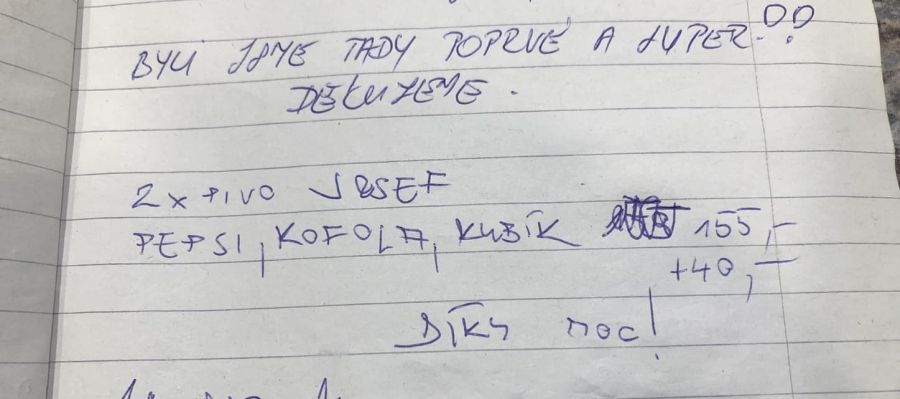 BYLI JSME TADY POPRVÉ A SUPER!!
DĚKUJEME.
2x PIVO JOSEF
PEPSI, KOFOLA, KUBÍK 155,-
+40,-
DÍKY MOC!